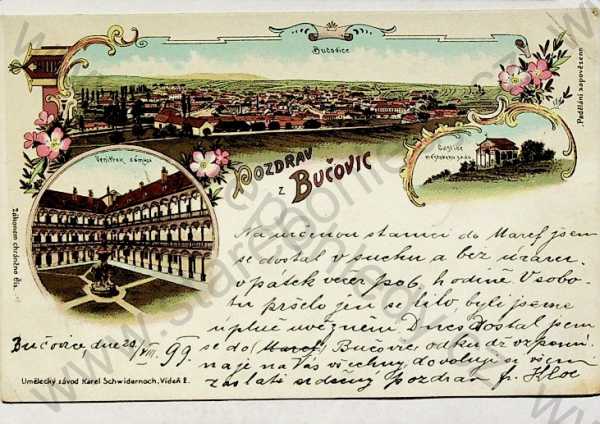 Bučovice
Vnitřek zámku
POZDRAV
z BUČOVIC
Padělání zapovězeno.
Zákonem chráněno čís.
Na určenou stanici do Maref jsem
se dostal v suchu a bez úrazu
v pátek večer po 6. hodině. V sobo-
tu pršelo jen se lilo byli jsme
úplně uvězněni Dnes dostal jsem
se do (Maref) Bučovic odkudž vzpomí-
naje na Vás všechny dovoluji si všem
zaslati srdečný pozdrav
Bučovice, dne 28/VIII. 99.
Umělecký závod Karel Schwidernoch, Vídeň 2.
www.staropohlednice.cz